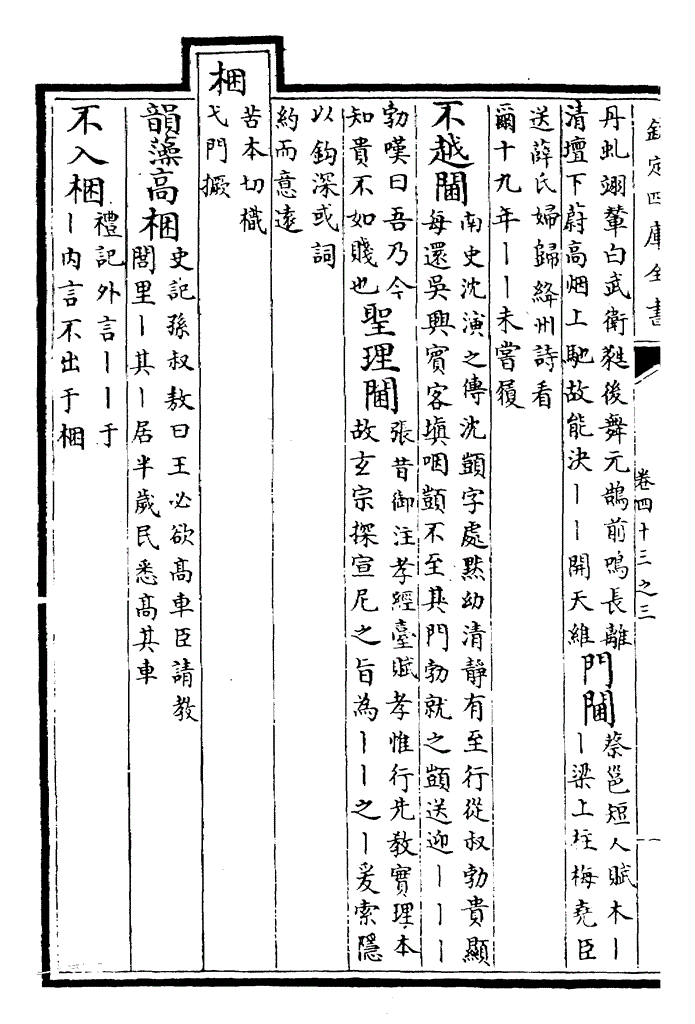 欽定四庫全書
卷四十三之三
丹虬翊輦白武衛㲪後舞元鵲前鳴長離
清壇下蔚高烟上馳故能決丨丨開天維
門閫
蔡邕短人賦木丨
丨梁上柱梅堯臣
送薛氏婦歸絳州詩看
爾十九年丨丨未嘗履
不越閫
南史沈演之傳沈顗字處黙幼清靜有至行從叔勃貴顯
每還吳興賓客塡咽顗不至其門勃就之顗送迎丨丨丨
勃嘆曰吾乃今
知貴不如賤也
聖理閫
張昔御注孝經臺賦孝惟行先教實理本
故玄宗探宣尼之旨為丨丨之丨爰索隱
以鈎深或詞
約而意遠
梱
苦本切樴
弋門橛
韻藻高梱
史記孫叔敖曰王必欲高車臣請教
閭里丨其丨居半歲民悉高其車
不入梱
禮記外言丨丨于
丨內言不出于梱